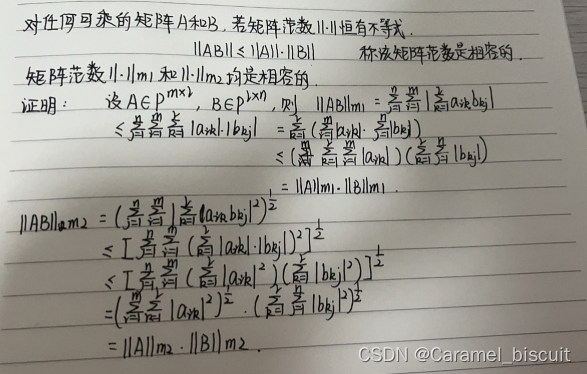 对任何可乘的矩阵A和B,若矩阵范数||·||恒有不等式
||AB|| ≤ ||A||·||B|| 称该矩阵范数是相容的.
矩阵范数||·||m1 和||·||m2 均是相容的.
证明: 设 A∈P^{m×l}, B∈P^{l×n}, 则 ||AB||m1 = \sum_{j=1}^{n}\sum_{i=1}^{m}|\sum_{k=1}^{l}a_{ik}b_{kj}|
≤ \sum_{j=1}^{n}\sum_{i=1}^{m}\sum_{k=1}^{l}|a_{ik}|·|b_{kj}| = \sum_{k=1}^{l}(\sum_{i=1}^{m}|a_{ik}|·\sum_{j=1}^{n}|b_{kj}|)
≤ (\sum_{k=1}^{l}\sum_{i=1}^{m}|a_{ik}|)(\sum_{k=1}^{l}\sum_{j=1}^{n}|b_{kj}|)
= ||A||m1·||B||m1.
||AB||m2 = (\sum_{j=1}^{n}\sum_{i=1}^{m}|\sum_{k=1}^{l}a_{ik}b_{kj}|^2)^{1/2}
≤ [\sum_{j=1}^{n}\sum_{i=1}^{m}(\sum_{k=1}^{l}|a_{ik}|·|b_{kj}|)^2]^{1/2}
≤ [\sum_{j=1}^{n}\sum_{i=1}^{m}(\sum_{k=1}^{l}|a_{ik}|^2)(\sum_{k=1}^{l}|b_{kj}|^2)]^{1/2}
= (\sum_{i=1}^{m}\sum_{k=1}^{l}|a_{ik}|^2)^{1/2}·(\sum_{k=1}^{l}\sum_{j=1}^{n}|b_{kj}|^2)^{1/2}
= ||A||m2·||B||m2.
CSDN @Caramel_biscuit